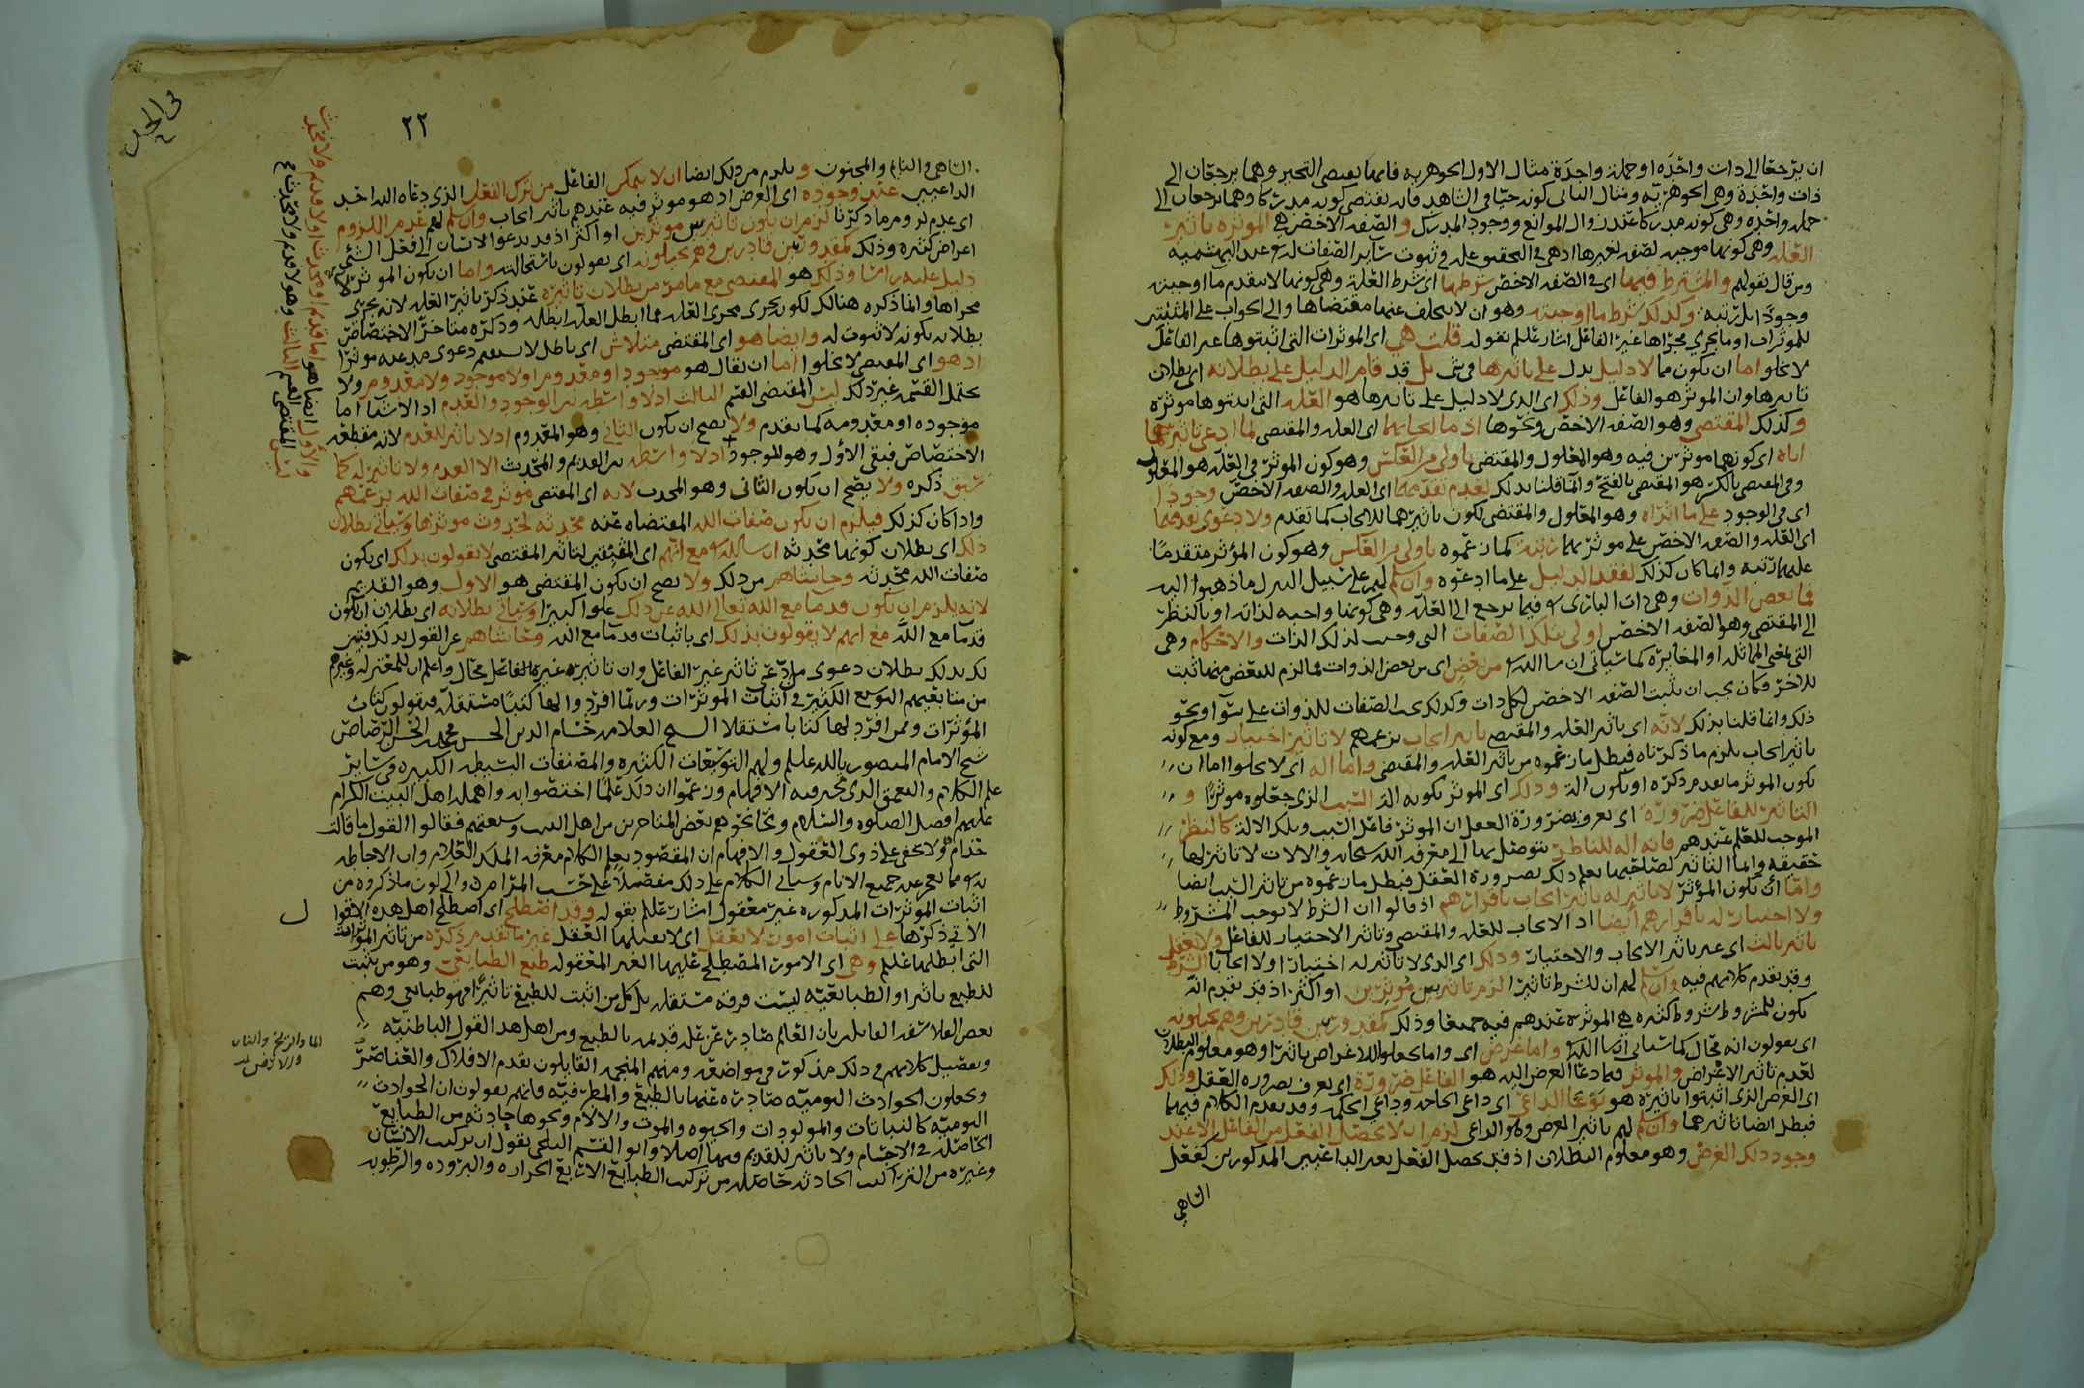 ان يرجعا الى ذات واحدة او جملة واحدة مثال الاول الجوهرية فانها تقتضي التحيز وهما يرجعان الى
ذات واحدة وهي الجوهرية ومثال الثاني كونه حيا في الشاهد فانه يقتضي كونه مدركا وهما يرجعان الى
جملة واحدة وهي كونه مدركا عند زوال الموانع ووجود المدرك والصفة الاخص هي المؤثرة تاثير
العلة وهي كونها موجبة لصفة لغيرها
ومن قال بقولهم والمشترط فيهما اي في الصفة الاخص شرطها اي شرط العلة وهي كونها لا تتقدم ما اوجبته
وجودا بل رتبة وكذلك شرط ما اوجبته وهو ان لا يتخلف عنها مقتضاها والى الجواب على المثبتين
للمؤثرات او ما يجري مجراها غير الفاعل اشار عليلم بقوله قلت هي اي المؤثرات التي اثبتوها غير الفاعل
لا تخلوا اما ان تكون مما لا دليل يدل على تاثيرها في شي بل قد قام الدليل على بطلانه اي بطلان
تاثيرها وان المؤثر هو الفاعل وذلك اي الذي لا دليل على تاثيرها هو العلة التي اثبتوها موثرة
وكذلك المقتضي وهو الصفة الاخص ونحوها اذ ما ايجابهما اي العلة والمقتضي لما ادعي تاثيرهما
اياه اي كونهما موثرين فيه وهو المعلول والمقتضى باولى من العكس وهو كون الموثر في العلة هو المعلول
وفي المقتضي بالكسر هو المقتضى بالفتح وانما قلنا بذلك لعدم تقدمهما اي العلة والصفة الاخص وجودا
اي في الوجود على ما اثراه وهو المعلول والمقتضى لكون تاثيرهما للايجاب كما تقدم ولا دعوى تقدمهما
اي العلة والصفة الاخص على موثرهما رتبة كما زعموه باولى من العكس وهو كون المؤثر متقدما
عليهما رتبة وانما كان كذلك لفقد الدليل على ما ادعوه وان سلم لهم على سبيل التنزل ما ذهبوا اليه
فما بعض الذوات وهي ذات الباري فيما يرجع الى العلة وهي كونها واجبة لذاته او بالنظر
الى المقتضي وهو الصفة الاخص اولى بتلك الصفات التي وجبت لذلك الذات والاحكام وهي
التي بمعنى المماثلة او المخالفة كما سياتي ان شا الله من بعض اي من بعض الذوات فما لزم للبعض منها ثبت
للآخر وكان يجب ان تثبت الصفة الاخص لكل ذات وكذلك تجب الصفات للذوات على سوا ونحو
ذلك وانما قلنا بذلك لانه اي تاثير العلة والمقتضي تاثير ايجاب بزعمهم لا تاثير اختيار ومع كونه
تاثير ايجاب يلزم ما ذكرناه فبطل ما زعموه من تاثير العلة والمقتضي واما آلة اي لا يخلوا اما ان
يكون الموثر ما تقدم ذكره او يكون آلة وذلك اي الموثر بكونه آلة السبب الذي جعلوه موثرا و
التاثير للفاعل ضرورة اي يعرف بضرورة العقل ان الموثر فاعل السبب وتلك الالة كالنظر
الموجب للعلم عندهم فانه آلة للناظر يتوصل بها الى معرفة الله سبحانه والالات لا تاثير لها
حقيقة وانما التاثير لصاحبها يعلم ذلك بضرورة العقل فبطل ما زعموه من تاثير السبب ايضا
واما ان يكون المؤثر لا تاثير له تاثير ايجاب باقرارهم اذ قالوا ان الشرط لا يوجب المشروط
ولا اختيار له باقرارهم ايضا اذ الايجاب للعلة والمقتضي وتاثير الاختيار للفاعل ولا يعقل
تاثير ثالث اي غير تاثير الايجاب والاختيار وذلك اي الذي لا تاثير له اختيارا ولا ايجابا الشرط
وقد تقدم كلامهم فيه وان سلم لهم ان للشرط تاثيرا لزم تاثير بين مؤثرين او اكثر اذ قد تقدم انه
يكون للمشروط شروط كثيرة هي الموثرة عندهم فيه جميعا وذلك كمقدور بين قادرين وهم يحيلونه
اي يقولون انه محال كما سياتي ان شا الله واما غرض اي واما يجعلوا للاغراض تاثيرا وهو معلوم البطلان
لعدم تاثير الاغراض والموثر فيما دعا الغرض اليه هو الفاعل ضرورة اي يعرف بضرورة العقل وذلك
اي الغرض الذي اثبتوا تاثيره هو نوعا الداعي اي داعي الحاجة وداعي الحكمة وقد تقدم الكلام فيهما
فبطل ايضا تاثيرهما وان سلم لهم تاثير الغرض وهو الداعي لزم ان لا يحصل الفعل من الفاعل الا عند
وجود ذلك الغرض وهو معلوم البطلان اذ قد يحصل الفعل بغير الداعيين المذكورين كفعل
الساهي
٢٢
الساهي والنايم والمجنون ويلزم من ذلك ايضا ان لا يتمكن الفاعل من ترك الفعل الذي دعاه اليه احد
الداعيين عند وجوده اي الغرض اذ هو موثر فيه عندهم تاثير ايجاب وان سلم لهم عدم اللزوم
اي عدم لزوم ما ذكرنا لزم ان يكون تاثير بين موثرين او اكثر اذ قد يدعو الانسان الى فعل الشي
اعراض كثيرة وذلك كمقدور بين قادرين وهم يحيلونه اي يقولون باستحالته واما ان يكون الموثر
دليل عليه راسا وذلك هو المقتضي مع ما مر من بطلان تاثيره عند ذكر تاثير العلة لانه يجري
مجراها وانما ذكره هنالك لكونه يجري مجرى العلة فما ابطل العلة ابطله وذكره متاخرا الاختصاص
بطلانه بكونه لا ثبوت له وايضا هو اي المقتضي متلاش اي باطل لا يستقيم دعوى مدعيه موثرا
اذ هو اي المقتضي لا يخلوا اما ان يقال هو موجود او معدوم او لا موجود ولا معدوم ولا
يحتمل القسمة غير ذلك ليس المقتضي القسم الثالث اذ لا واسطة بين الوجود والعدم اذ الاشيا اما
موجودة او معدومة كما تقدم ولا يصح ان يكون الثاني وهو المعدوم اذ لا تاثير للعدم لانه مقطعة
الاختصاص فبقي الاول وهو الموجود اذ لا واسطة بين القديم والمحدث الا العدم ولا تاثير له كما
سبق ذكره ولا يصح ان يكون الثاني وهو المحدث لانه اي المقتضي موثر في صفات الله بزعمهم
واذا كان كذلك فيلزم ان يكون صفات الله المقتضاه عنه محدثة لحدوث موثرها وسياتي بطلان
ذلك اي بطلان كونها محدثة ان شا الله مع انهم اي المثبتين لتاثير المقتضي لا يقولون بذلك اي بكون
صفات الله محدثة وحاشاهم من ذلك ولا يصح ان يكون المقتضي هو الاول وهو القديم
لانه يلزم ان يكون قديما مع الله تعالى الله عن ذلك علوا كبيرا وسياتي بطلانه اي بطلان ان يكون
قديما مع الله مع انهم لا يقولون بذلك اي باثبات قديم مع الله وحاشاهم عن القول بذلك فتبين
لك بذلك بطلان دعوى من ادعى تاثير غير الفاعل وان تاثيره غير الفاعل محال واعلم ان للمعتزلة وغيرهم
من متابعيهم التوسع الكثير في اثبات المؤثرات وربما افردوا لها كتبا مستقلة فيقولون كتاب
المؤثرات وممن افرد لها كتابا مستقلا الشيخ العلامة حسام الدين الحسن بن محمد بن الحسن الرصاص
شيخ الامام المنصور بالله عليلم ولهم التوسعات الكثيرة والمصنفات البسيطة الكبيرة في سائر
علم الكلام والتعمق الذي تحير فيه الافهام وزعموا ان ذلك علما اختصوا به واهمله اهل البيت الكرام
عليهم افضل الصلوة والسلام ونحا نحوهم بعض المتاخرين من اهل البيت وشيعتهم فقالوا القول ما قالت
حذام ولا يخفى على ذوي العقول والافهام ان المقصود بعلم الكلام معرفة الملك العلام وان الاحاطة
به مما يعجز عنه جميع الانام وسياتي الكلام على ذلك مفصلا على حسب المرام والى كون ما ذكروه من
اثبات المؤثرات المذكورة غير معقول اشار عليلم بقوله وقد اصطلح اي اصطلح اهل هذه الاقوال
الاتي ذكرها على اثبات امور لا تعقل اي لا يقبلها العقل غير ما تقدم ذكره من تاثير المؤثرات
التي ابطلها عليلم وهي اي الامور المصطلح عليها الغير المعقولة طبع الطبايعي وهو من يثبت
للطبع تاثيرا والطبايعية ليست فرقة مستقلة بل كل من اثبت للطبع تاثيرا فهو طبايعي وهم
بعض الفلاسفة القايلة بان العالم صادر عن علة قديمة بالطبع ومن اهل هذا القول الباطنية
وتفصيل كلامهم في ذلك مذكور في مواضعه ومنهم المنجمة القايلون بقدم الافلاك والعناصر
ويجعلون الحوادث اليومية صادرة عنها بالطبع والمطرفية فانهم يقولون ان الحوادث
اليومية كالنباتات والمولودات والحيوة والموت والالام ونحوها حادثة من الطبايع
الحاصلة في الاجسام ولا تاثير للقديم فيها اصلا وابو القسم البلخي يقول ان تركيب الانسان
وغيره من التراكيب الحادثة حاصلة من تركيب الطبايع الاربع الحرارة والبرودة والرطوبة
الما والريح والنار
والارض